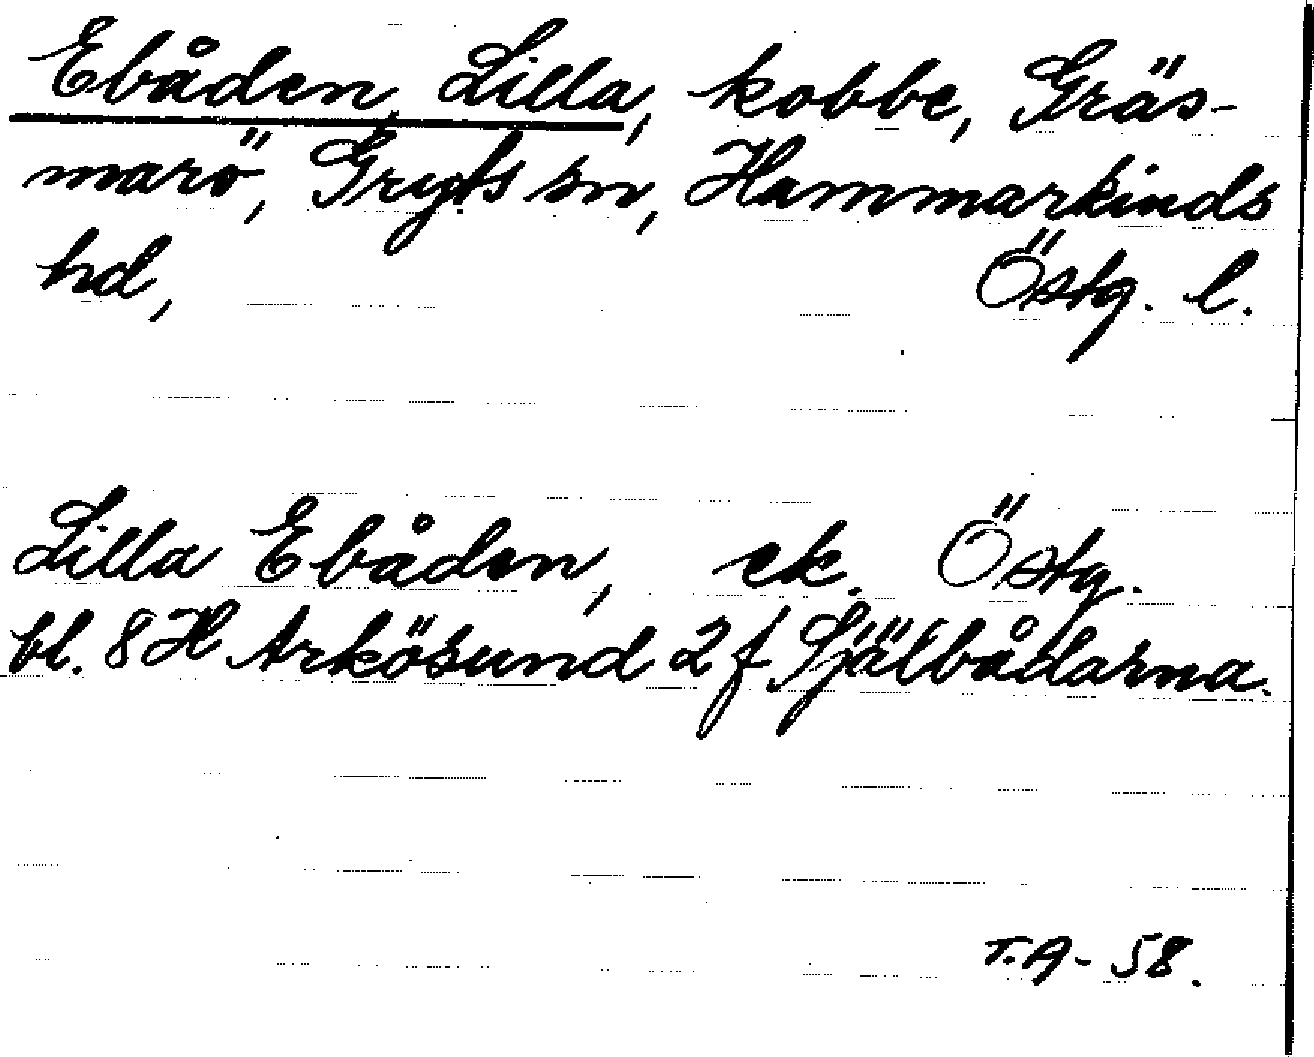 Ebåden, Lilla, kobbe, Gräs-
marö, Gryts sn, Hammarkinds
hd, Östg. l.
Lilla Ebåden, ek. Östg.
bl. 8 H Arkösund 2 f Själbådarna.
T.A - 58.